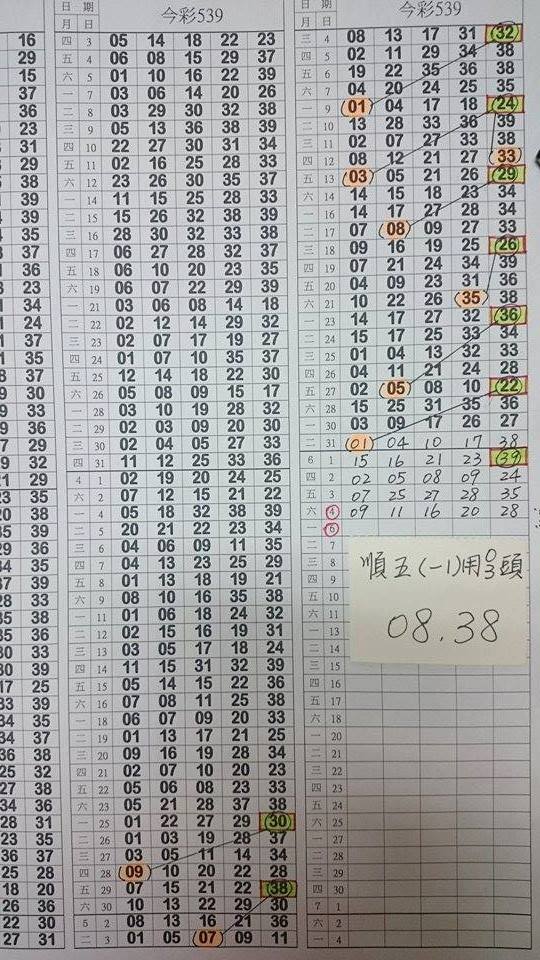 16
29
15
37
36
23
31
29
38
39
39
35
37
36
23
34
24
37
35
37
30
33
36
29
32
29
35
38
39
36
35
39
33
38
36
33
39
25
39
35
37
38
32
38
36
31
35
37
28
20
36
30
31
日 期
月 日
今彩539
四 3 05 14 18 22 23
五 4 06 08 15 29 37
六 5 01 10 16 22 39
一 7 03 06 14 20 26
二 8 03 29 30 32 38
三 9 05 13 36 38 39
四 10 22 27 30 31 34
五 11 02 16 25 28 33
六 12 23 26 30 35 37
一 14 11 15 25 28 33
二 15 15 26 32 38 39
三 16 28 30 32 33 38
四 17 06 27 28 32 37
五 18 06 10 20 23 35
六 19 06 07 22 29 39
一 21 03 06 08 14 18
二 22 02 12 14 29 32
三 23 02 07 17 19 27
四 24 01 07 10 35 37
五 25 12 14 18 22 30
六 26 05 08 09 15 17
一 28 03 10 19 28 32
二 29 02 03 09 20 30
三 30 02 04 05 27 33
四 31 11 12 25 33 36
4 1 02 19 20 24 25
六 2 07 12 15 21 22
一 4 05 18 32 38 39
二 5 20 21 22 23 34
三 6 04 06 09 11 35
四 7 04 13 23 25 29
五 8 01 13 18 19 21
六 9 08 10 16 35 38
一 11 01 06 18 24 32
二 12 02 15 16 19 31
三 13 03 05 17 18 24
四 14 11 15 31 32 39
五 15 05 14 15 22 36
六 16 07 08 11 25 38
一 18 06 07 09 20 33
二 19 01 13 17 21 25
三 20 09 16 19 28 34
四 21 02 07 10 20 23
五 22 05 06 08 23 33
六 23 05 21 28 37 38
一 25 01 22 27 29 30
二 26 01 03 19 28 37
三 27 03 05 11 14 34
四 28 09 10 20 22 28
五 29 07 15 21 22 38
六 30 10 13 22 29 30
5 2 08 13 16 21 36
二 3 01 05 07 09 11
日 期
月 日
今彩539
三 4 08 13 17 31 32
四 5 02 11 29 34 38
五 6 19 22 35 36 38
六 7 04 20 24 25 35
一 9 01 04 17 18 24
二 10 13 28 33 36 39
三 11 02 07 27 33 38
四 12 08 12 21 27 33
五 13 03 05 21 26 29
六 14 14 15 18 23 34
一 16 14 17 27 28 34
二 17 07 08 09 27 33
三 18 09 16 19 25 26
四 19 07 21 24 34 39
五 20 04 09 23 31 36
六 21 10 22 26 35 38
一 23 14 17 27 32 36
二 24 15 17 25 33 34
三 25 01 04 13 32 33
四 26 04 11 21 24 28
五 27 02 05 08 10 22
六 28 15 25 31 35 36
一 30 03 09 17 26 27
二 31 01 04 10 17 38
6 1 15 16 21 23 39
四 2 02 05 08 09 24
五 3 07 25 27 28 35
六 4 09 11 16 20 28
一 6
二 7
三 8
四 9
五 10
六 11
一 13
二 14
三 15
四 16
五 17
六 18
一 20
二 21
三 22
四 23
五 24
六 25
一 27
二 28
三 29
四 30
7 1
六 2
一 4
順五(-1)用0 3頭
08.38